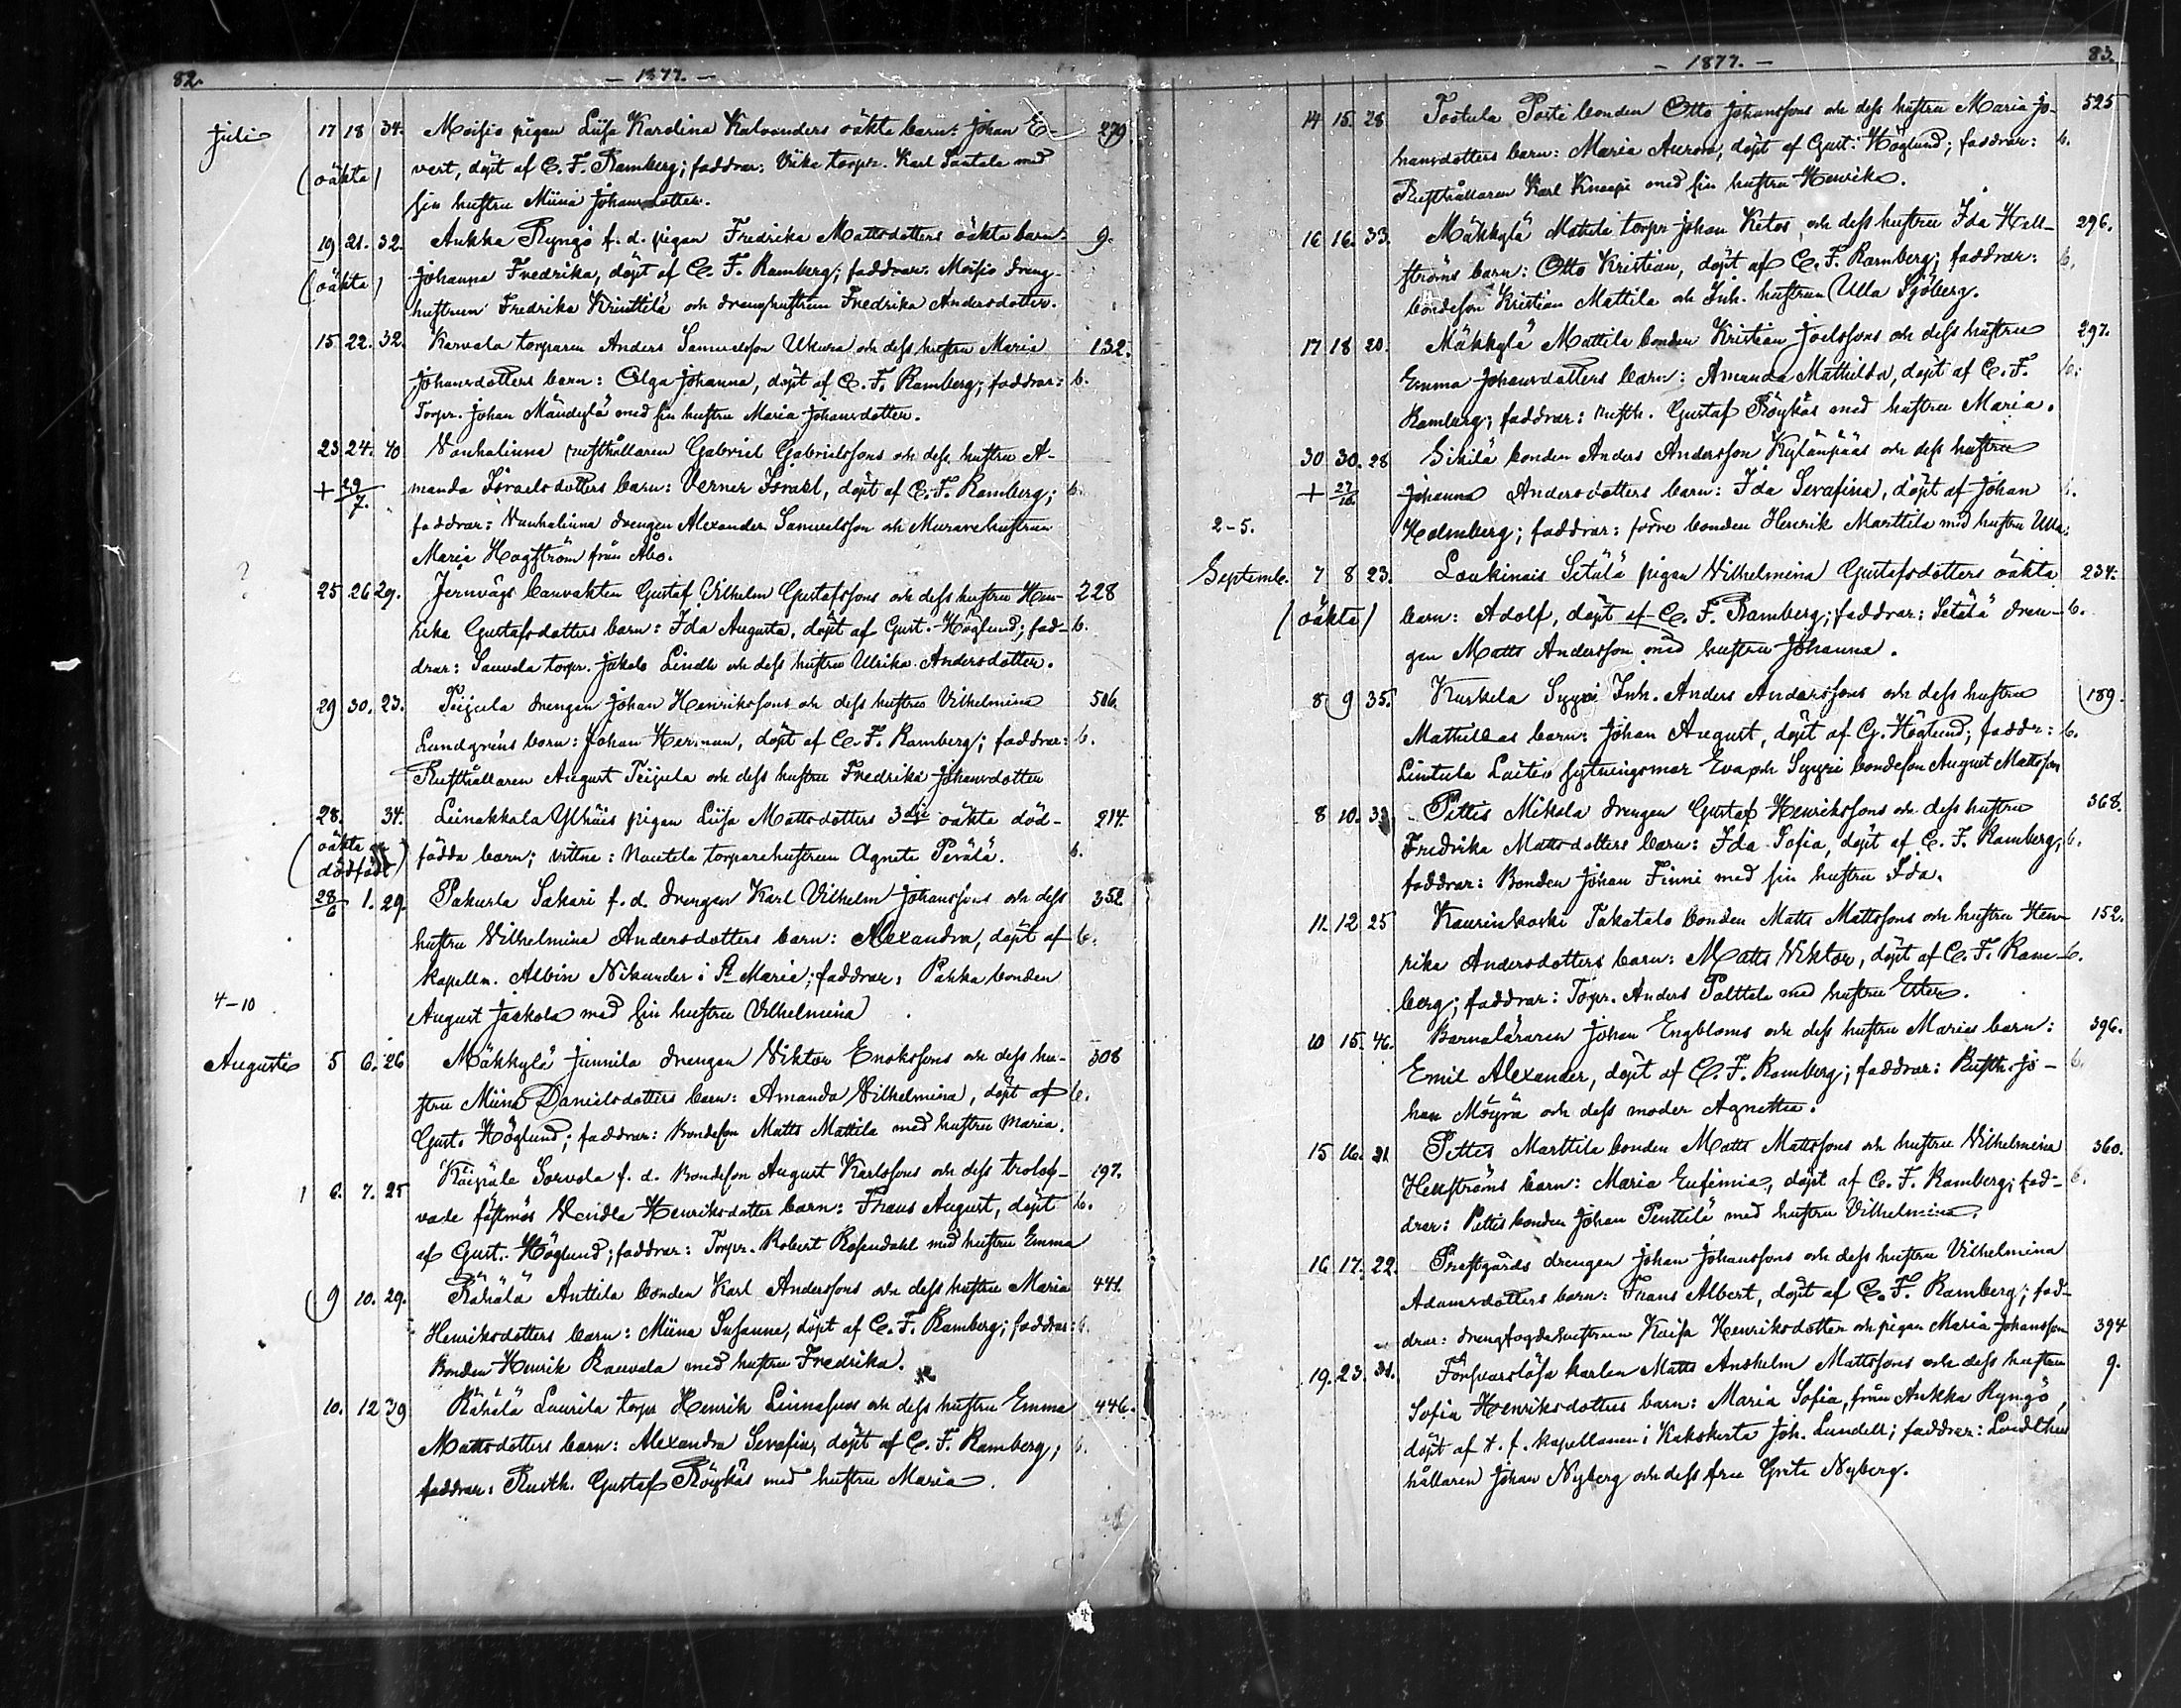 82.
— 1877. —
Juli 17 18 34. Moisio pigan Liisa Karolina Kalvanders oäkta barn: Johan E- 279
(oäkta) vert, döpt af C. F. Ramberg; faddrar: torpr. Karl Santala med
sin hustru Miina Johansdotter.
19 21. 32. Aukka Ryngö f. d. pigan Fredrika Mattsdotters oäkta barn 9.
(oäkta) Johanna Fredrika, döpt af C. F. Ramberg; faddrar: Moisio dreng-
hustrun Fredrika Knuttilä och drenghustrun Fredrika Andersdotter.
15 22. 32. Karvala torparen Anders Samuelsson och dess hustru Maria 132.
Johansdotters barn: Olga Johanna, döpt af C. F. Ramberg; faddrar: b.
Torpr. Johan Mändylä med sin hustru Maria Johansdotter.
23 24. 40 Vanhalinna rusthållaren Gabriel Gabrielssons och dess hustru A-
+ 29/7. manda Israelsdotters barn: Verner Israel, döpt af C. F. Ramberg; b.
faddrar: Vanhalinna drengen Alexander Samuelsson och Murarehustrun
Maria Hagström från Åbo.
25 26 29. Jernvägs banvakten Gustaf Vilhelm Gustafssons och dess hustru Hen- 228
rika Gustafsdotters barn: Ida Augusta, döpt af Gust. Höglund; fad- b.
drar: Sauvala torpr. Jakob Lindh och dess hustru Ulrika Andersdotter.
29 30. 23. Teijula drengen Johan Henrikssons och dess hustru Vilhelmina 506.
Lundgréns barn: Johan Herman, döpt af C. F. Ramberg; faddrar: b.
Rusthållaren August Teijula och dess hustru Fredrika Johansdotter
28. 34. Leinakkala Ylhäis pigan Liisa Mattsdotters 3dje oäkta död- 214.
(oäkta dödfödt) födda barn; vittne: Nautela torparehustrun Agneta Perälä. b.
28/6 1. 29. Pakurla Sakari f. d. drengen Karl Vilhelm Johanssons och dess 352
hustru Vilhelmina Andersdotters barn: Alexandra, döpt af b.
kapelln. Albin Nikander i St Marie; faddrar: Pahka bonden
4—10 August Jaakola med sin hustru Vilhelmina
Augusti 5 6. 26 Mäkkylä Junnila drengen Viktor Enokssons och dess hu- 308
stru Miina Danielsdotters barn: Amanda Vilhelmina, döpt af b.
Gust. Höglund; faddrar: Bondeson Matts Mattila med hustru Maria.
1 6. 7. 25 Sorvola f. d. Bondeson August Karlssons och dess trolof- 197.
vade fästmös Vendla Henriksdotter barn: Frans August, döpt b.
af Gust. Höglund; faddrar: Torpr. Robert Rosendahl med hustru Emma
9 10. 29. Rähälä Anttila bonden Karl Anderssons och dess hustru Maria 441.
Henriksdotters barn: Miina Susanna, döpt af C. F. Ramberg; faddrar: b.
Bonden Henrik Rauvola med hustru Fredrika.
10. 12 39 Rähälä Laurila torpr Henrik Linnasuos och dess hustru Emma 446.
Mattsdotters barn: Alexandra Serafina, döpt af C. F. Ramberg; b.
faddrar: Rusth. Gustaf Röykäs med hustru Maria.
— 1877. —
83.
14 15. 28 Tootula Posti bonden Otto Johanssons och dess hustru Maria Jo- 525
hansdotters barn: Maria Aurora, döpt af Gust. Höglund; faddrar: b.
Rusthållaren Karl Knaapi med sin hustru Henrika.
16 16. 33. Mäkkylä Mattila torpr Johan Ketos, och dess hustru Ida Hell- 296.
ströms barn: Otto Kristian, döpt af C. F. Ramberg; faddrar: b.
bondeson Kristian Mattila och Inh. hustrun Ulla Sjöberg.
17 18 20. Mäkkylä Mattila bonden Kristian Joelssons och dess hustru 297.
Emma Johansdotters barn: Amanda Mathilda, döpt af C. F. b.
Ramberg; faddrar: rusth. Gustaf Röykäs med hustru Maria.
30 30. 28 Sikilä bonden Anders Andersson Kylänpääs och dess hustru
+ 27/10 Johanna Andersdotters barn: Ida Serafina, döpt af Johan b.
2—5. Holmberg; faddrar: förre bonden Henrik Marttila med hustru Ulla.
Septemb. 7 8 23. Loukinais Setälä pigan Vilhelmina Gustafsdotters oäkta 234.
(oäkta) barn: Adolf, döpt af C. F. Ramberg; faddrar: Setälä dren- b.
gen Matts Andersson med hustru Johanna.
8 9 35. Kurkela Syyri Inh. Anders Anderssons och dess hustru 189.
Mathildas barn: Johan August, döpt af G. Höglund; faddr: b.
Lintula Laitio sytningsmor Eva och Syyri bondeson August Mattsson
8 10. 33 Pettis Mikola drengen Gustaf Henrikssons och dess hustru 368.
Fredrika Mattsdotters barn: Ida Sofia, döpt af C. F. Ramberg; b.
faddrar: Bonden Johan Finni med sin hustru Ida.
11. 12 25 Kaurinkoski Takatalo bonden Matts Mattssons och hustru Hen- 152.
rika Andersdotters barn: Matts Viktor, döpt af C. F. Ram- b.
berg; faddrar: Torpr. Anders Palttala med hustru Ester.
10 15. 46. Barnaläraren Johan Engbloms och dess hustru Marias barn: 396.
Emil Alexander, döpt af C. F. Ramberg; faddrar: Rusth. Jo- b.
han Möyrä och dess moder Agnetha.
15 16. 21 Pettis Marttila bonden Matts Mattssons och hustru Vilhelmina 360.
Hellströms barn: Maria Eufemia, döpt af C. F. Ramberg; fad- b.
drar: Pettis bonden Johan Penttilä med hustru Vilhelmina.
16 17. 22. Prestgårds drengen Johan Johanssons och dess hustru Vilhelmina
Adamsdotters barn: Frans Albert, döpt af C. F. Ramberg; fad-
drar: drengfogdehustrun Kaisa Henriksdotter och pigan Maria Johansson 394
19. 23. 31. Försvarslösa karlen Matts Anshelm Mattssons och dess hustru 9.
Sofia Henriksdotters barn: Maria Sofia, från Aukka Ryngö,
döpt af t. f. kapellanen i Kakskerta Joh. Lundell; faddrar:
hållaren Johan Nyberg och dess fru Greta Nyberg.